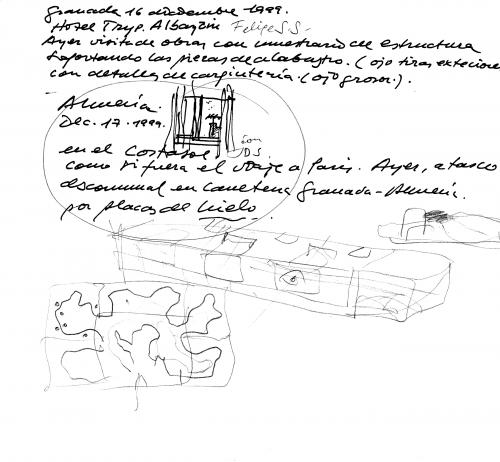 Granada 16 diciembre 1999.
Hotel Tryp. Albayzín Felipe S.S.
Ayer visita de obras con muestrario de estructura
soportando las piezas de alabastro. (ojo tiras exteriores
con detalles de carpintería. (ojo grosor.).
Almería.
Dec. 17. 1999.
con
JDS.
en el Costasol
como si fuera el viaje a París. Ayer, atasco
descomunal en carretera Granada-Almería.
por placas de hielo.